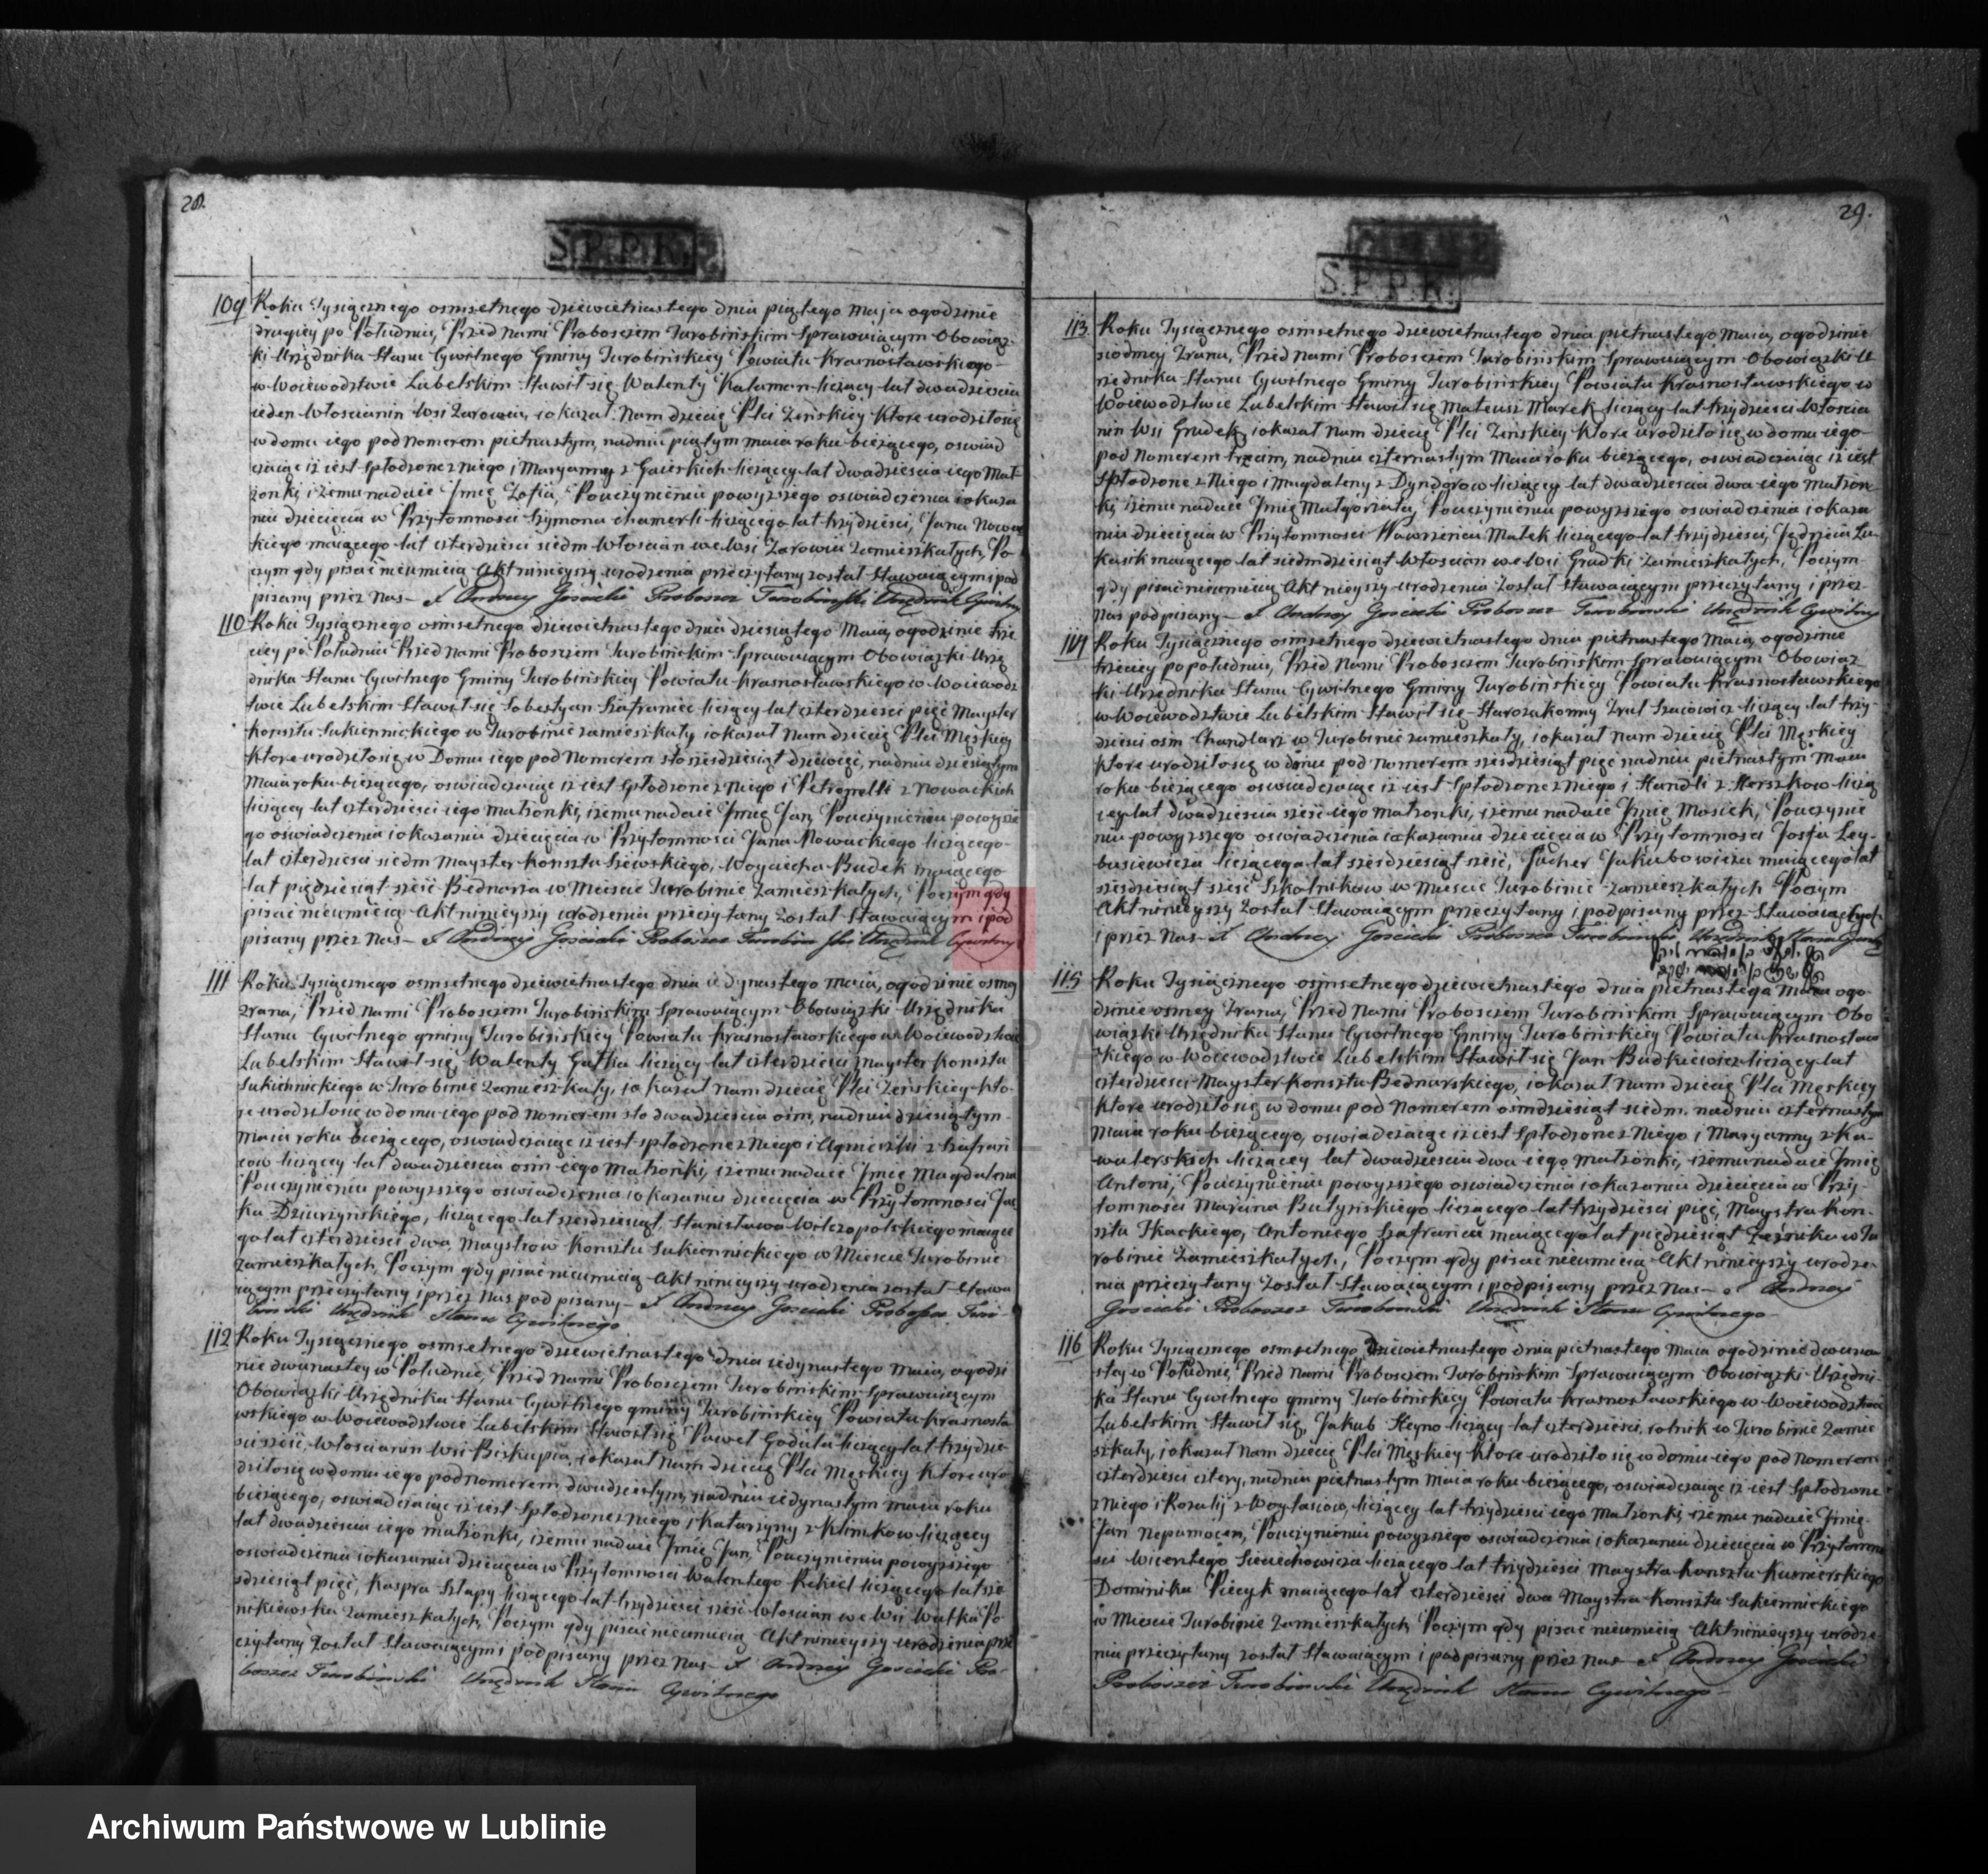 28.
S.P.P.K.
109 Roku Tysiącznego osmsetnego dziewietnastego dnia piątego Maja ogodzinie
drugiey po Południu, Przed Nami Proboszczem Turobińskim Sprawuiącym Obowiąz-
ki Urzędnika Stanu Cywilnego Gminy Turobińskiey Powiatu Krasnostawskiego
w Woiewodztwie Lubelskim Stawił się Walenty Kałaman liczący lat dwadziescia
ieden Włoscianin Wsi Żarowia, iokazał Nam dziecię Płci Żeńskiey które urodziłosię
w domu iego pod Nomerem pietnastym, nadniu piątym maia roku bieżącego, oswiad
czaiąc iż iest spłodzone zniego i Maryanny z Gaierskich liczącey lat dwadziescia iego Mał
żonki, iżemu nadaie Jmię Zofia, Pouczynieniu powyższego oswiadczenia iokaza
niu dziecięcia w Przytomnosci Szymona Chamerli liczącego lat trzydziesci, Jana Nowac
kiego maiącego lat czterdziesci siedm Włoscian we Wsi Żarowiu Zamieszkałych, Po
czym gdy pisać nieumieią Akt ninieyszy urodzenia przeczytany został Stawaiącym i pod
pisany przez Nas – X Andrzey Gosiecki Proboszcz Turobinski Urzędnik Cywilny
110 Roku Tysiącznego osmsetnego dziewietnastego dnia dziesiątego Maia, ogodzinie trze
ciey po Południu Przed Nami Proboszczem Turobińskim Sprawuiącym Obowiązki Urzę
dnika Stanu Cywilnego Gminy Turobińskiey Powiatu Krasnostawskiego w Woiewodz
twie Lubelskim Stawił się Sobestyan Szafraniec liczący lat czterdziesci pięć Mayster
Konsztu Sukiennickiego w Turobinie zamieszkały iokazał Nam dziecię Płci Męskiey
które urodziłosię w Domu iego pod Nomerem sto sześdziesiąt dziewięć, nadniu dziesiątym
Maia roku bieżącego, oswiadczaiąc iż iest Spłodzone zNiego i Petronelli z Nowackich
liczącey lat czterdziesci iego Małżonki, iżemu nadaie Jmię Jan, Pouczynieniu powyższe
go oswiadczenia iokazaniu dziecięcia w Przytomnosci Jana Nowackiego liczącego
lat czterdziesci siedm Mayster Konsztu Szewskiego, Woyciecha Budek maiącego
lat pięćdziesiąt sześć Bednarza w Miescie Turobinie Zamieszkałych, Poczym gdy
pisać nieumieią Akt ninieyszy urodzenia przeczytany Został Stawaiącym i pod
pisany przez Nas – X Andrzey Gosiecki Proboszcz Turobinski Urzędnik Cywilny
111 Roku Tysiącznego osmsetnego dziewietnastego dnia iedynastego Maia, ogodzinie osmey
Zrana, Przed Nami Proboszczem Turobińskim Sprawuiącym Obowiązki Urzędnika
Stanu Cywilnego gminy Turobińskiey Powiatu Krasnostawskiego w Woiewodztwie
Lubelskim Stawił się Walenty Gałka liczący lat czterdziesci Mayster Konsztu
Sukiennickiego w Turobinie Zamieszkały, iokazał Nam dziecię Płci Żeńskiey któ
re urodziłosię w domu iego pod Nomerem sto dwadziescia osm, nadniu dziesiątym
Maia roku bieżącego, oswiadczaiąc iż iest spłodzone zNiego i Agnieszki z Szafrań
cow liczącey lat dwadziescia osm iego Małżonki, iżemu nadaie Jmię Magdalena
Pouczynieniu powyższego oswiadczenia iokazaniu dziecięcia w Przytomnosci
ka Dziurzyńskiego, liczącego lat szesdziesiąt, Stanisława Wilczopolskiego maiące
go lat czterdziesci dwa Maystrow Konsztu Sukiennickiego w Miescie Turobinie
zamieszkałych, Poczym gdy pisać nieumieią Akt ninieyszy urodzenia został Stawa
iącym przeczytany i przez Nas podpisany – X Andrzey Gosiecki Proboszcz Turo-
binski Urzędnik Stanu Cywilnego
112 Roku Tysiącznego osmsetnego dziewietnastego dnia iedynastego Maia, ogodzi
nie dwunastey w Południe, Przed Nami Proboszczem Turobińskim Sprawuiącym
Obowiązki Urzędnika Stanu Cywilnego gminy Turobińskiey Powiatu Krasnosta
wskiego w Woiewodztwie Lubelskim Stawił się Paweł Godula liczący lat trzydzie
sci sześć, Włoscianin Wsi Biskupia, iokazał Nam dziecię Płci Męskiey które uro
dziłosię w domu iego pod nomerem dwudziestym, nadniu iedynastym maia roku
bieżącego, oswiadczaiąc iż iest Spłodzone zNiego i Katarzyny z Klimkow liczącey
lat dwadziescia iego małżonki, iżemu nadaie Jmię Jan, Pouczynieniu powyższego
oswiadczenia iokazaniu dziecięcia w Przytomnosci Walentego Rekiel liczącego lat sze
sdziesiąt pięć, Kaspra Szłapy liczącego lat trzydziesci sześć Włoscian we Wsi Wułka Po
nikiewska zamieszkałych, Poczym gdy pisać nieumieią Akt ninieyszy urodzenia prze
czytany Został Stawaiącym i podpisany przez Nas – X Andrzey Gosiecki Pro-
boszcz Turobinski Urzędnik Stanu Cywilnego
29.
S.P.P.K.
113. Roku Tysiącznego osmsetnego dziewietnastego dnia pietnastego Maia, ogodzinie
siodmey Zrana, Przed Nami Proboszczem Turobińskim Sprawuiącym Obowiązki U
rzędnika Stanu Cywilnego Gminy Turobińskiey Powiatu Krasnostawskiego w
Woiewodztwie Lubelskim Stawił się Mateusz Marek liczący lat trzydziesci Włoscia
nin Wsi Grudek, iokazał Nam dziecię Płci Żeńskiey które urodziłosię w domu iego
pod Nomerem trzecim, nadniu czternastym Maia roku bieżącego, oswiadczaiąc iż iest
Spłodzone zNiego i Magdaleny z Dyndorow liczącey lat dwadziescia dwa iego Małżon
ki, iżemu nadaie Jmię Małgorzata, Pouczynieniu powyższego oswiadczenia iokaza
niu dziecięcia w Przytomnosci Wawrzenca Małek liczącego lat trzydziesci, Jędrzeia Łu
kasik maiącego lat siedmdziesiąt Włoscian we Wsi Gradki Zamieszkałych, Poczym
gdy pisać nieumieią Akt nieyszy urodzenia Został Stawaiącym przeczytany i przez
Nas podpisany – X Andrzey Gosiecki Proboszcz Turobinski Urzędnik Cywilny
114 Roku Tysiącznego osmsetnego dziewietnastego dnia pietnastego Maia, ogodzinie
trzeciey popołudniu, Przed Nami Proboszczem Turobińskim Sprawuiącym Obowiąz
ki Urzędnika Stanu Cywilnego Gminy Turobińskiey Powiatu Krasnostawskiego
w Woiewodztwie Lubelskim Stawił się Starozakonny Zrul liczący lat trzy-
dziesci osm Chandlarz w Turobinie zamieszkały, iokazał Nam dziecię Płci Męskiey
które urodziłosię w domu pod Nomerem szesdziesiąt pięc nadniu pietnastym Maia
roku bieżącego oswiadczaiąc iż iest Spłodzone zNiego i Handli z Herszkow licząc
cey lat dwadziescia sześć iego Małżonki, iżemu nadaie Jmię Mosiek, Pouczynie
niu powyższego oswiadczenia iokazaniu dziecięcia w Przytomnosci Josfa Ley-
busiewicza liczącego lat szesdziesiąt sześć, Sucher Jakubowicza maiącego lat
szesdziesiąt sześć Szkolnikow w Miescie Turobinie zamieszkałych Poczym
Akt ninieyszy Został Stawaiącym przeczytany i podpisany przez Stawaiących
i przez Nas X Andrzey Gosiecki Proboszcz Turobinski Urzędnik Stanu Cywilny
115 Roku Tysiącznego osmsetnego dziewietnastego dnia pietnastego Maia ogo-
dzinie osmey Zrana, Przed Nami Proboszczem Turobińskim Sprawuiącym Obo
wiązki Urzędnika Stanu Cywilnego Gminy Turobińskiey Powiatu Krasnostaw
skiego w Woiewodztwie Lubelskim Stawił się Jan Budkiewicz liczący lat
czterdziesci Mayster Konsztu Bednarskiego, iokazał Nam dziecię Płci Męskiey
które urodziłosię w domu pod Nomerem osmdziesiąt siedm. nadniu czternastym
Maia roku bieżącego, oswiadczaiąc iż iest Spłodzone zNiego i Maryanny z Ka-
walerskich liczącey lat dwadziescia dwa iego Małżonki, iżemu nadaie Jmię
Antoni, Pouczynieniu powyższego oswiadczenia iokazaniu dziecięcia w Przy-
tomnosci Maryana Butyńskiego liczącego lat trzydziesci pięć, Maystra Kon-
sztu Tkackiego, Antoniego Szafrańca maiącego lat piędziesiąt w Tu
robinie Zamieszkałych, Poczym gdy pisać nieumieią Akt ninieyszy urodze-
nia przeczytany Został Stawaiącym i podpisany przez Nas – X Andrzey
Gosiecki Proboszcz Turobinski Urzędnik Stanu Cywilnego
116 Roku Tysiącznego osmsetnego Dziewietnastego dnia pietnastego Maia ogodzinie dwuna
stey w Południe, Przed Nami Proboszczem Turobińskim Sprawuiącym Obowiązki Urzędni-
ka Stanu Cywilnego gminy Turobińskiey Powiatu Krasnostawskiego w Woiewodztwie
Lubelskim Stawił się Jakub Heyno liczący lat czterdziesci, rolnik w Turobinie Zamie
szkały, iokazał Nam dziecię Płci Męskiey które urodziło się w domu iego pod Nomerem
czterdziesci cztery, nadniu pietnastym Maia roku bieżącego, oswiadczaiąc iż iest Spłodzone
zNiego i Rozalij z Woytasiow, liczącey lat trzydziesci iego Małżonki, iżemu nadaie Jmię
Jan Nepumocen, Pouczynieniu powyższego oswiadczenia iokazaniu dziecięcia w Przytomno
sci Wicentego Sieciechowicza liczącego lat trzydziesci Maystra Konsztu Kusnierskiego
Dominika Pieczyk maiącego lat czterdziesci dwa Maystra Konsztu Sukiennickiego
w Miescie Turobinie Zamieszkałych Poczym gdy pisać nieumieią Akt ninieyszy urodze-
nia przeczytany został Stawaiącym i podpisany przez Nas – X Andrzey Gosiecki
Proboszcz Turobinski Urzędnik Stanu Cywilnego
Archiwum Państwowe w Lublinie